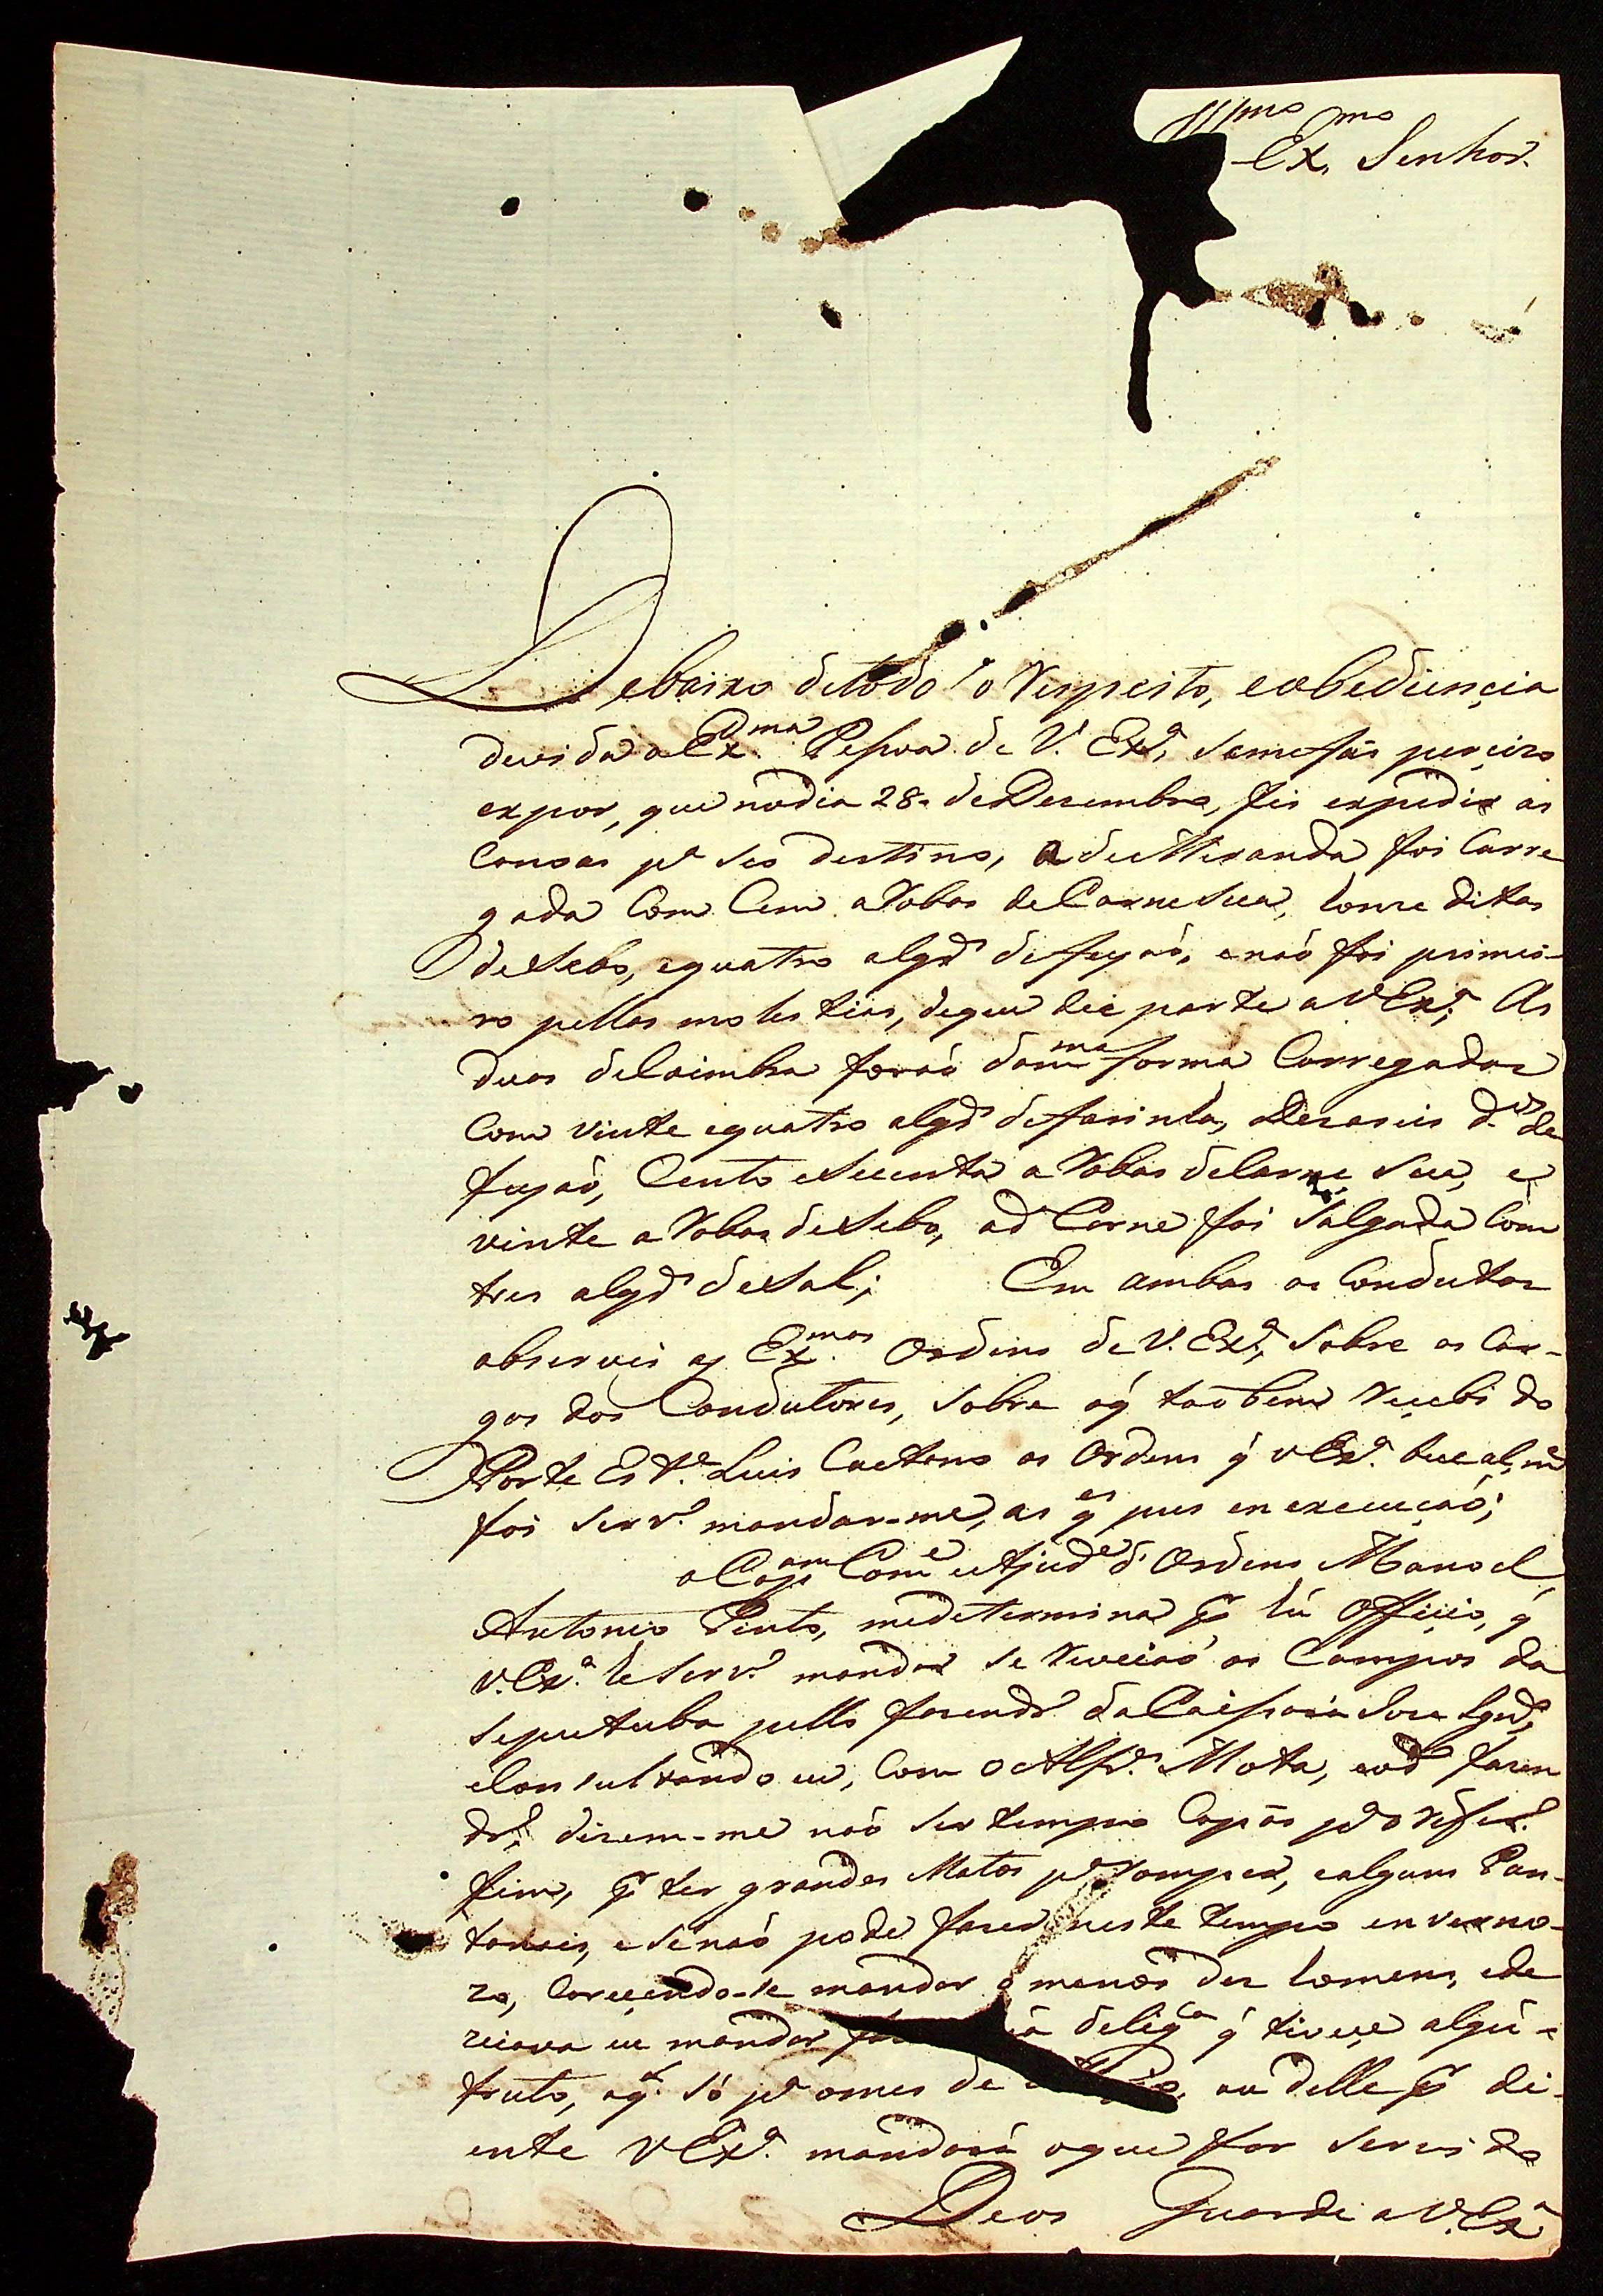 Illmo Exmo Senhor.
Debaixo detodo o Respeito, eobediencia
devida a Exma Pessoa de V. Exa, semefás perciso
expor, que nodia 28. deDesembro, fis expedir as
Canoas pa seo destino, a de Miranda foi Carre
gada Com Cem aRobas deCarne seca, honze ditas
deSebo, equatro algs defeyaó, enaó foi primei-
ro pellas molestias, deque dei parte a VExa; As
duas deCoimbra foraó dama forma Carregadas
Com vinte equatro algs defarinha, Deaseis ds de
feyaó, Cento eSecenta aRobas deCarne Seca, e
vinte aRobas deSebo, ada Carne foi Salgada Com
tres algs deSal; Em ambas as Condutas
observei as Exmas Ordens de V. Exa, Sobre os Car-
gos dos Condutores, Sobre oq̃ taobem Recebi do
Porte Este Luis Caetano as Ordens q̃ VExa. bucalme
foi servo. mandar-me, as qes pus en execuçaó;
oCapam Come eAjude d'Ordens Manoel
Antonio Pinto, medetermina pr hú Officio, q̃
V.Exa. he Servo. mandar se os Campos da
Seputuba pello da Joze
eConsultando eu, Com oAlfs. Mota, eodo fazen
dro, dizem-me naó ser tempo Capás pa o refero.
fim, pr ter grandes Matos pa Romper, ealguns Pan-
tanais, eSenaó pode fazer neste tempo enverno-
zo, Carecendo-se mandar o menos des homens, ede
eu mandar delliga q̃ tivece algú-
fruto, oq̃. Só pa omes de ou delle pr di-
ente VExa. mandará oque for servido
Deos Guarde a V.Exa